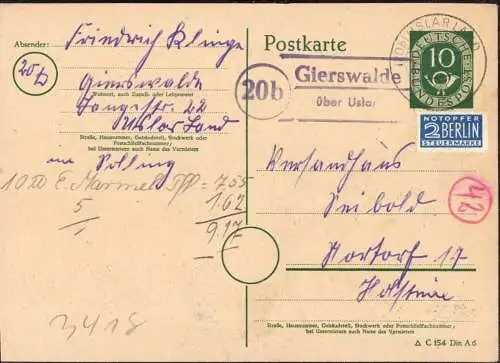 Absender:
Friedrich Klinge
20b
Gierswalde
Wohnort, auch Zustell- oder Leitpostamt
Langestr. 22
Uslar Land
Straße, Hausnummer, Gebäudeteil, Stockwerk oder
Postschließfachnummer;
bei Untermietern auch Name des Vermieters
am Solling
10
= 7.55
5
1.62
9.17
3418
Postkarte
20b
Gierswalde
über Uslar
USLAR LAND
10
DEUTSCHE
BUNDESPOST
NOTOPFER
2 BERLIN
STEUERMARKE
42
Versandhaus
Seibold
Nortorf 17
Holstein
Straße, Hausnummer, Gebäudeteil, Stockwerk oder Postschließfachnummer;
bei Untermietern auch Name des Vermieters
C 154 Din A 6